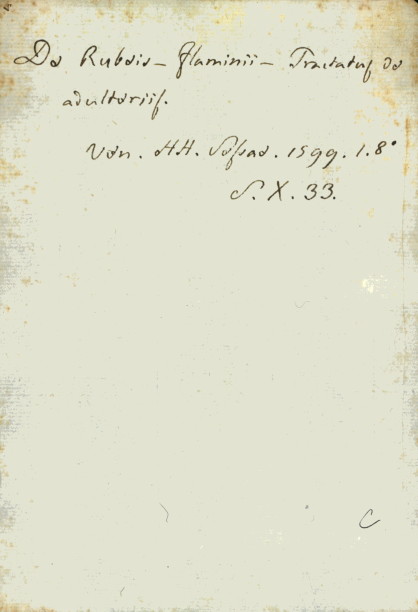 De Rubeis - Flaminii - Tractatus de
adulteriis.
Ven. HH. Sessae. 1599. 1. 8°
S. X. 33.
C